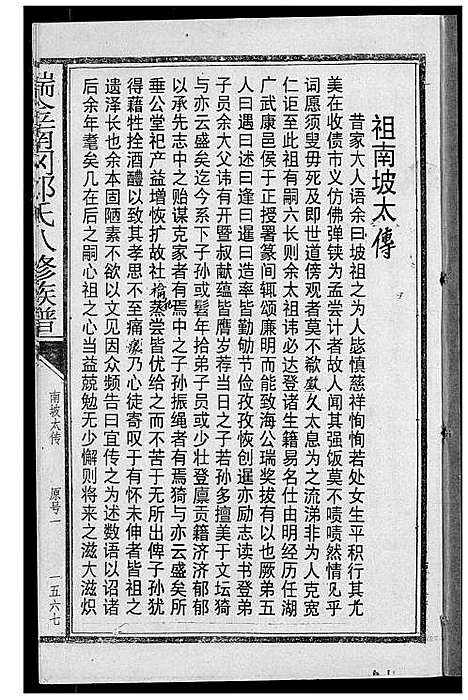 祖南坡太傳
昔家大人语余曰坡祖之为人毖慎慈祥恂恂若处女生平积行其尤
美在收债市义仿佛弹铗为孟尝计者故人闻其强饭莫不啧啧然情见乎
词愿须臾毋死及即世道傍观者莫不欷歔久太息为之流涕非为夫人克宽
仁讵至此祖有嗣六长则余太祖讳必达登诸生籍易名仕由明经历任湖
广武康邑侯于正授署篆间辄颂廉明而能致海公瑞奖拔有以也厥弟五
人曰遇曰述曰逢曰暹曰造率皆勤劬节俭孜孜恢创暹亦励志读书登弟
子员余大父讳有开暨叔献蕴皆膺岁荐当日之子若孙多擅美于文坛猗
与亦云盛矣迄今系下子孙或髫年拾弟子员或少壮登廪贡籍济济郁郁
以承先志中之贻谋克家者有焉类而推之子孙振绳者有焉猗与亦云盛矣所
垂公堂祀产益增恢扩故社禴祀蒸尝皆优给之而不苦于无所出俾子孙犹
得藉牲拴酒醴以致其孝思不至痛瘝乃心徒寄叹于有怀未伸者皆祖之
遗泽长也余本固陋素不欲以文见因众频告曰宜传之为述数语以诏诸
后余年耄矣几在后之嗣心祖之心当益兢勉无少懈则将来之滋大滋炽
瑞金南冈邓氏八修族谱
南坡太传
原号一
一五六七